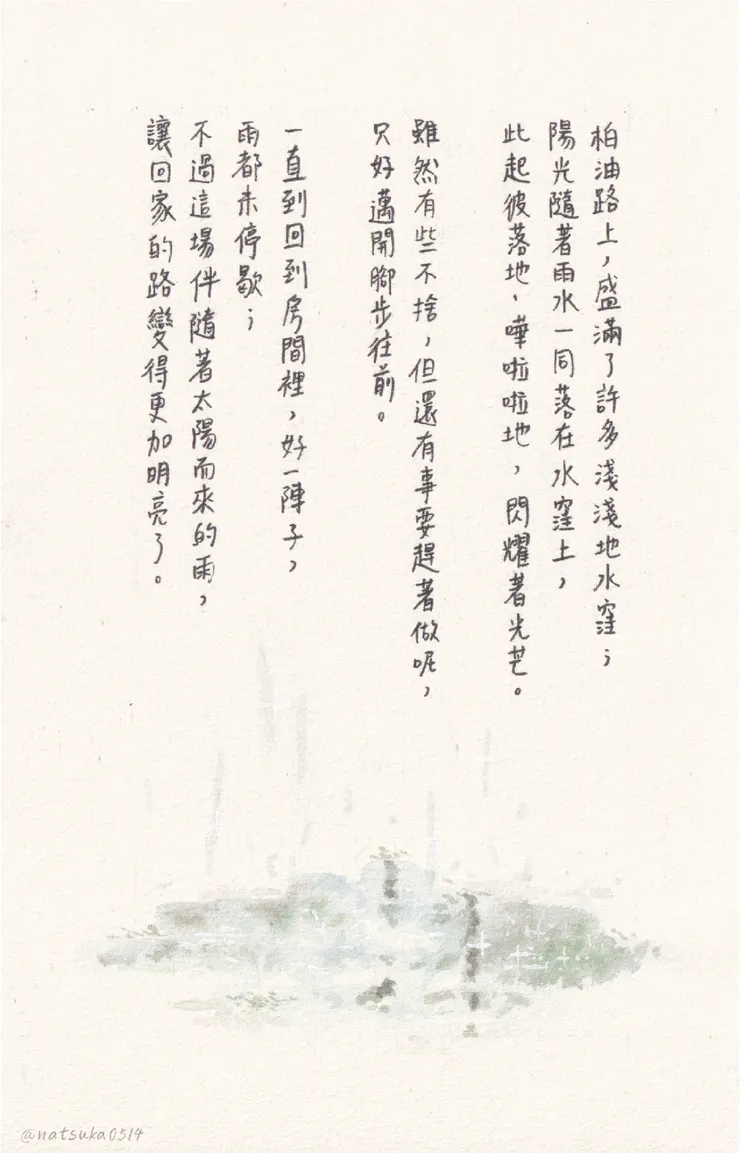 柏油路上，盛滿了許多淺淺地水窪；
陽光隨著雨水一同落在水窪上，
此起彼落地、嘩啦啦地，閃耀著光芒。
雖然有些不捨，但還有事要趕著做呢，
只好邁開腳步往前。
一直到回到房間裡，好一陣子，
雨都未停歇；
不過這場伴隨著太陽而來的雨，
讓回家的路變得更加明亮了。
@natsuka0514